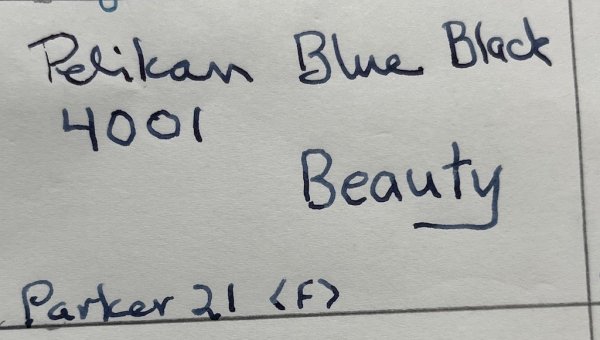 Pelikan Blue Black
4001
Beauty
Parker 21 <F>